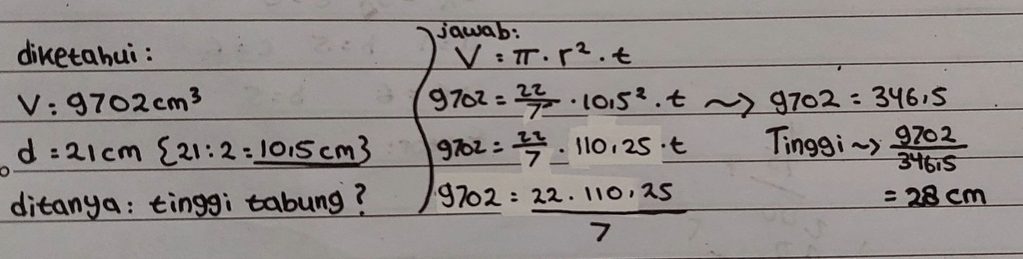 diketahui:
V: 9702 cm³
d = 21 cm {21:2 = 10,5 cm}
ditanya: tinggi tabung?
jawab:
V = π · r² · t
9702 = 22/7 · 10,5² · t ~> 9702 = 346,5
9702 = 22/7 · 110,25 · t
9702 = 22 · 110,25 / 7
Tinggi ~> 9702/346,5
= 28 cm